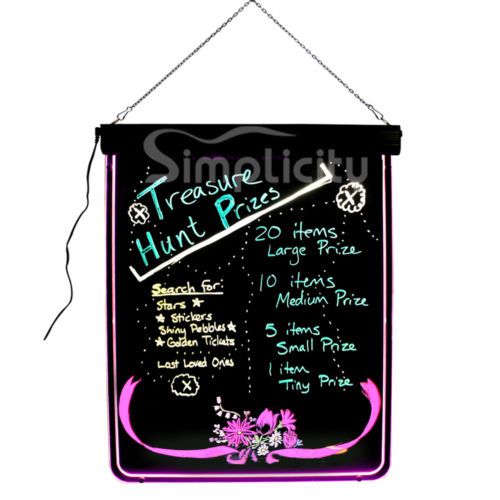 Simplicity
Treasure
Hunt Prizes
Search For:
Stars
Stickers
Shiny Pebbles
Golden Tickets
Lost Loved Ones
20 items
Large Prize
10 items
Medium Prize
5 items
Small Prize
1 item
Tiny Prize